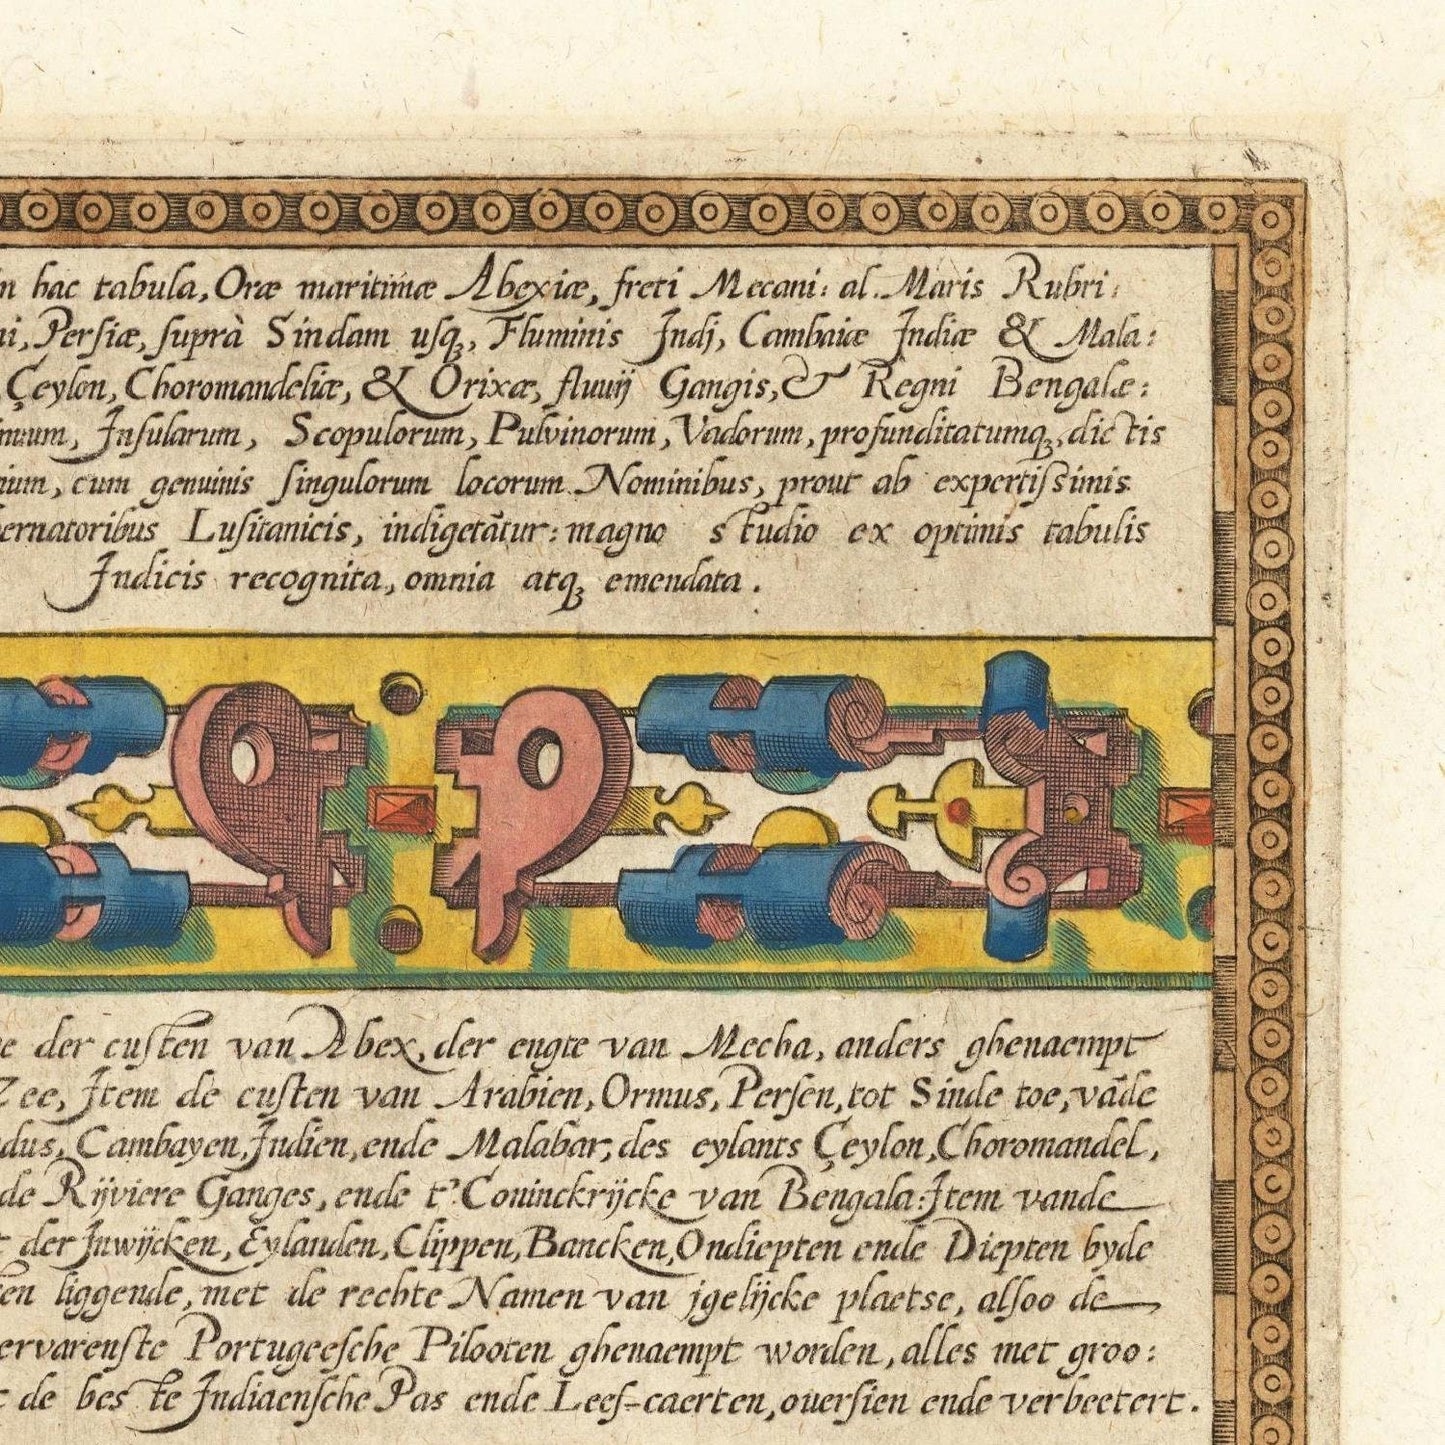 hac tabula, Oræ maritimæ Abexiæ, freti Mecani: al. Maris Rubri:
Persiæ, suprà Sindam usq₃, Fluminis Indj, Cambaiæ Indiæ & Mala:
Çeylon, Choromandeliæ, & Orixæ, fluuij Gangis, & Regni Bengalæ:
Insularum, Scopulorum, Pulvinorum, Vadorum, profunditatumq₃, dictis
cum genuinis singulorum locorum Nominibus, prout ab expertissimis
ernatoribus Lusitanicis, indigetãtur: magno studio ex optimis tabulis
Indicis recognita, omnia atq₃ emendata.
der custen van Abex, der engte van Mecha, anders ghenaempt
Zee, Item de custen van Arabien, Ormus, Persen, tot Sinde toe, vãde
dus, Cambayen, Indien, ende Malabar, des eylants Çeylon, Choromandel,
de Rijviere Ganges, ende t' Coninckrijcke van Bengala: Item vande
der Inwijcken, Eylanden, Clippen, Bancken, Ondiepten ende Diepten byde
en liggende, met de rechte Namen van jgelijcke plaetse, alsoo de
ervarenste Portugeesche Pilooten ghenaempt worden, alles met groo:
de beste Indiaensche Pas ende Lees-caerten, ouersien ende verbeetert.